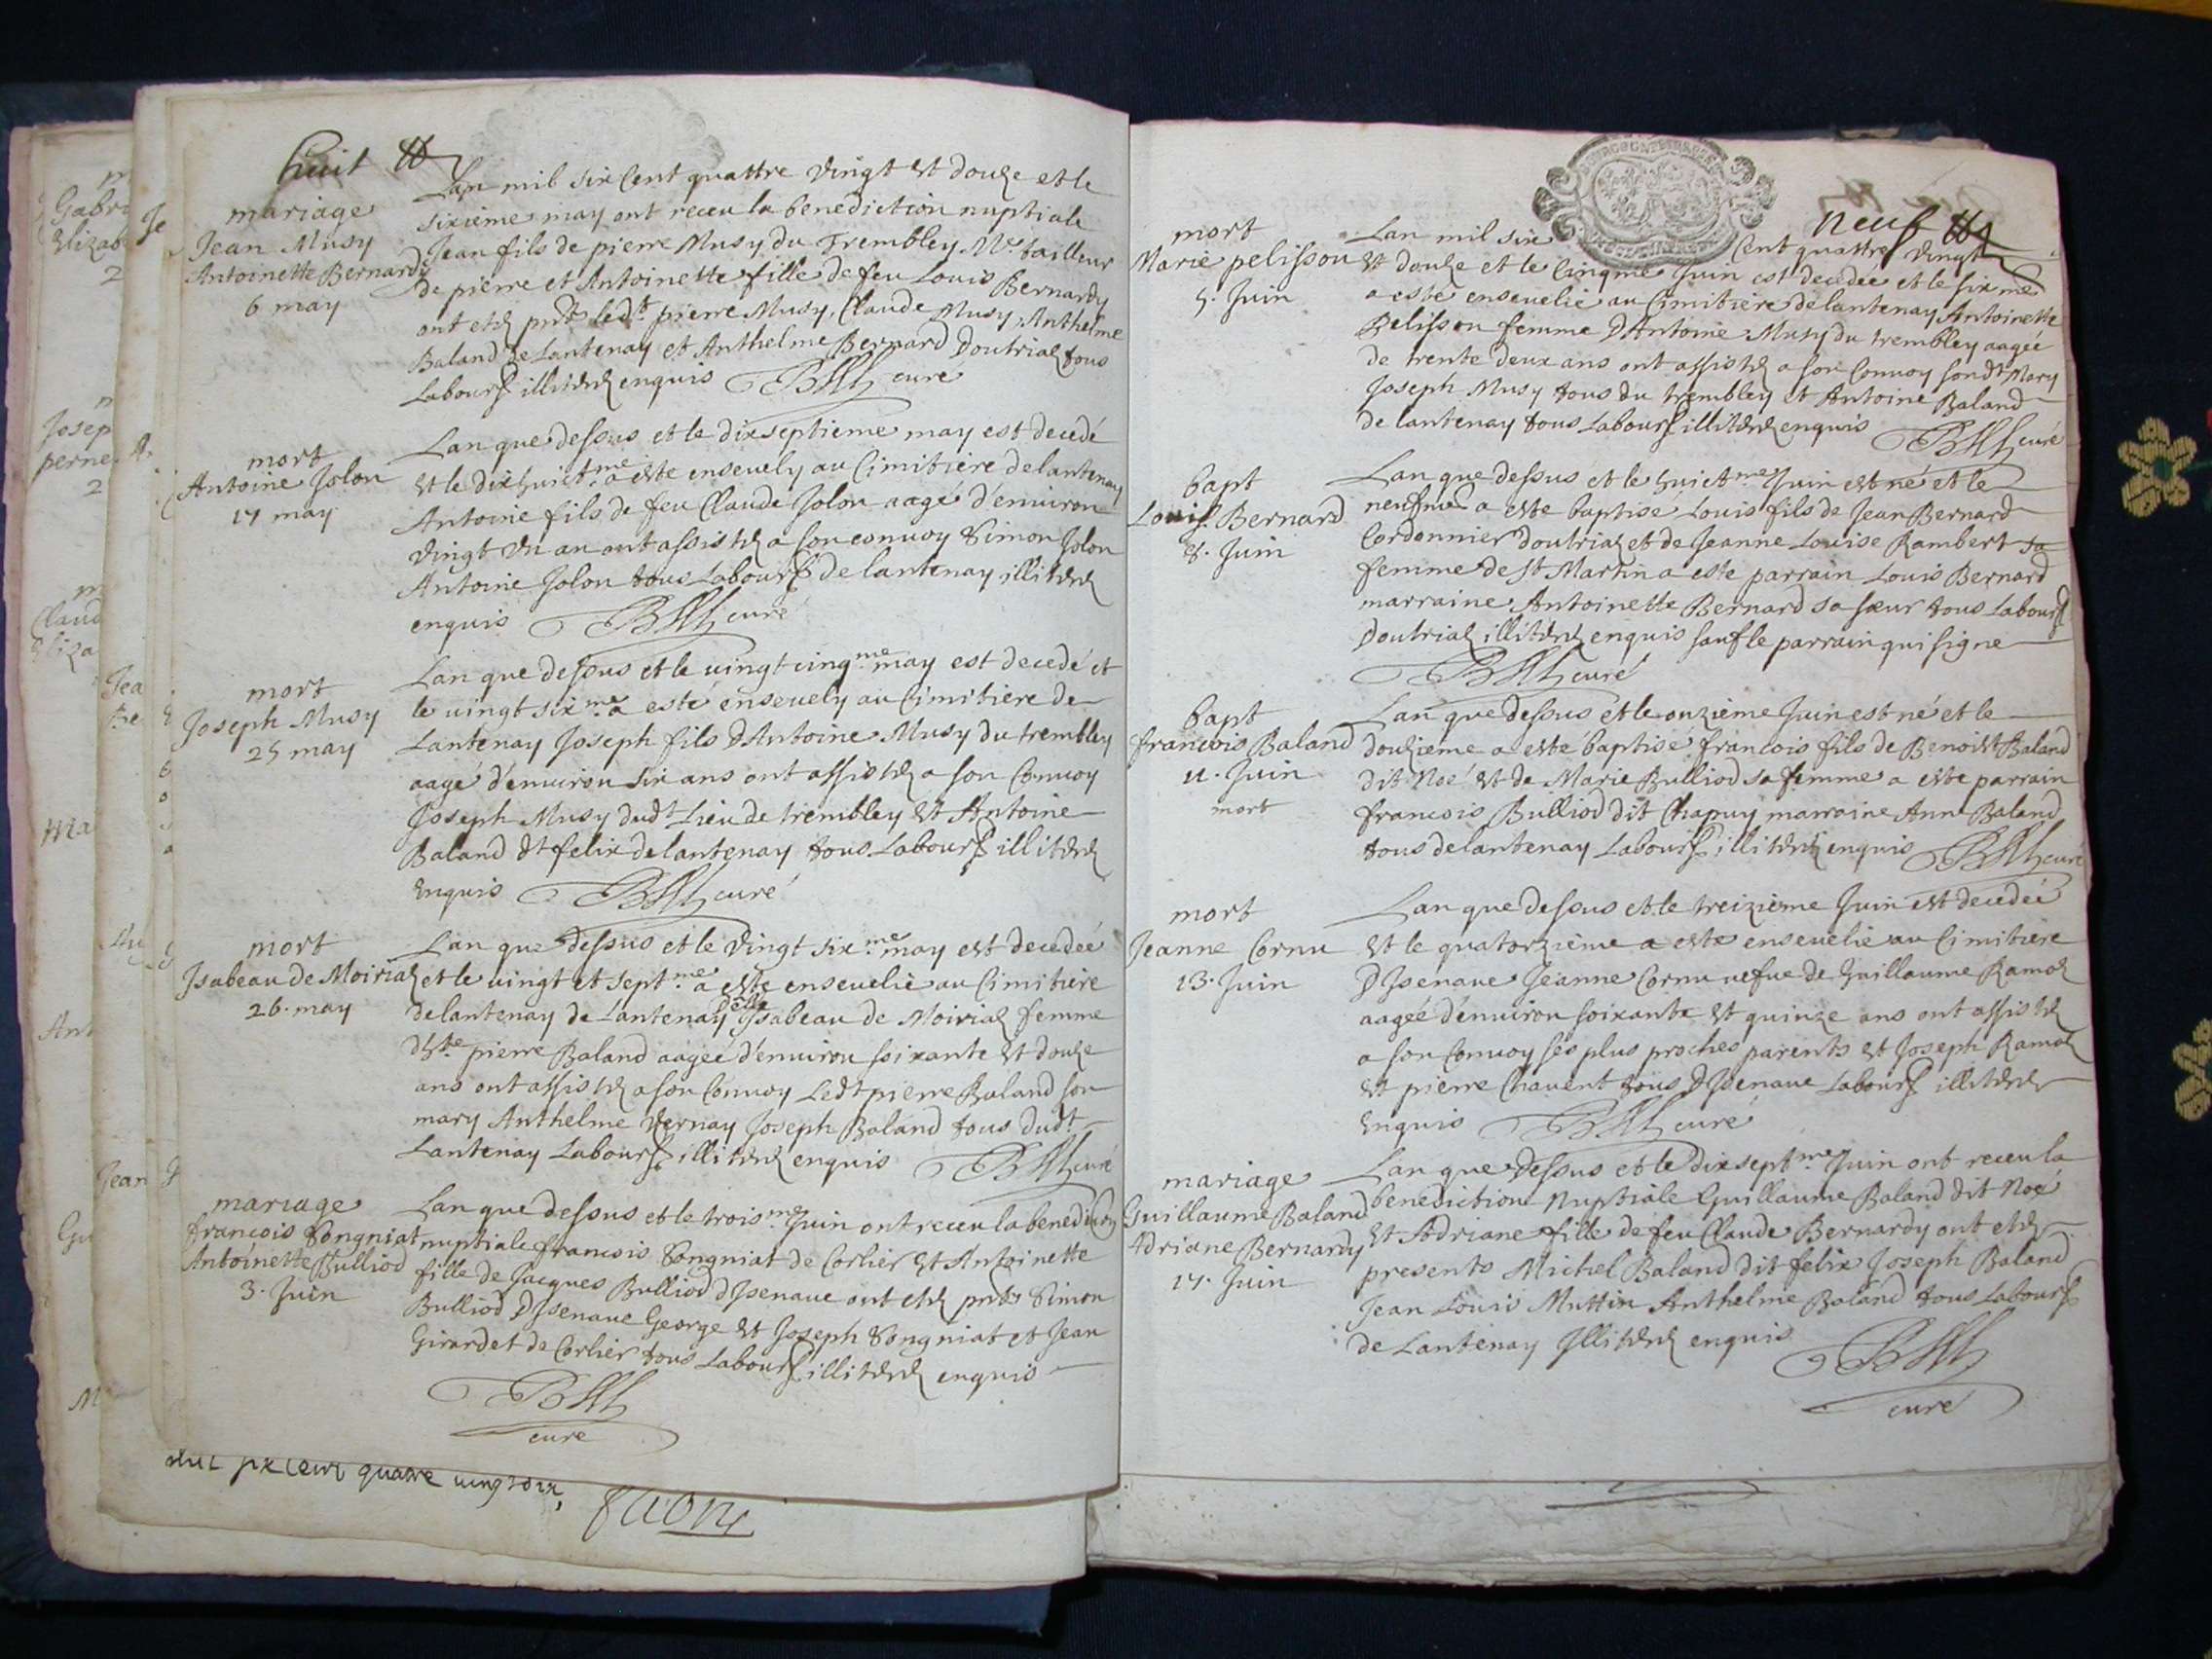 huit
mariage
Jean Musy
Antoinette Bernardy
6 may
Lan mil six Cent quattre vingt et douze et le
sixieme may ont receu la benediction nuptiale
Jean fils de pierre Musy du Trembley Me tailleur
de pierre et Antoinette fille de feu Louis Bernardy
ont etez pnts ledt pierre Musy, Claude Musy, Anthelme
Baland de Lantenay et Anthelme Bernard Doutriaz tous
Labours illiterez enquis curé
mort
Antoine Jolon
17 may
Lan que dessus et le dixseptieme may est decedé
et le dixhuictme a este enseuely au Cimitiere de lantenay
Antoine fils de feu Claude Jolon aagé d'enuiron
vingt un an ont assistez a son conuoy Simon Jolon
Antoine Jolon tous Labours de lantenay illiterez
enquis curé
mort
Joseph Musy
25 may
Lan que dessus et le uingt cinqme may est decedé et
le uingt sixme a esté enseuely au Cimitiere de
Lantenay Joseph fils D'Antoine Musy du trembley
aagé d'enuiron six ans ont assistez a son Conuoy
Joseph Musy dudt Lieu de trembley et Antoine
Baland dt felix de lantenay tous Labours illiterez
enquis curé
mort
Isabeau de Moiriaz
26. may
Lan que dessus et le vingt sixme may est decedeé
et le uingt et septme a este enseuelie au Cimitiere
de lantenay de Lantenay delle Isabeau de Moiriaz femme
pierre Baland aageé d'enuiron soixante et douze
ans ont assistez a son Conuoy Ledt pierre Baland son
mary Anthelme Vernay Joseph Baland tous dudt
Lantenay Labours illiterez enquis curé
mariage
francois Songniat
Antoinette Bulliod
3. Juin
Lan que dessus et le troisme Juin ont receu la benediction
nuptiale francois Songniat de Corlier et Antoinette
fille de Jacques Bulliod dIsenaue ont etez pnts Simon
Bulliod DIsenaue George et Joseph Songniat et Jean
Girardet de Corlier tous Labours illiterez enquis
curé
six cent quatre uingt
neuf
mort
Marie pelisson
5. Juin
Lan mil six Cent quattre vingt
et douze et le Cinqme Juin est decedée et le sixme
a esté enseuelie au Cimitiere de lantenay Antoinette
Pelisson femme D'Antoine Musy du trembley aageé
de trente deux ans ont assistez a son Conuoy sondt Mary
Joseph Musy tous du trembley et Antoine Baland
de lantenay tous Labours illiterez enquis curé
bapt
Louis Bernard
8. Juin
Lan que dessus et le huictme Juin est né et le
neufme a este baptisé Louis fils de Jean Bernard
Cordonnier doutriaz et de Jeanne Louise Rambert sa
femme de St Martin a este parrain Louis Bernard
marraine Antoinette Bernard sa sœur tous Labours
Doutriaz illiterez enquis sauf le parrain qui signe
curé
bapt
francois Baland
11. Juin
mort
Lan que dessus et le onzieme Juin est né et le
douzieme a este baptisé francois fils de Benoist Baland
dit Noé et de Marie Bulliod sa femme a este parrain
francois Bulliod dit Chapuy marraine Anne Baland
tous de lantenay Labours illiterez enquis curé
mort
Jeanne Cornu
13. Juin
Lan que dessus et le treizieme Juin est decedeé
et le quatorzieme a este enseuelie au Cimitiere
DIsenaue Jeanne Cornu uefue de Guillaume Ramoz
aageé d'enuiron soixante et quinze ans ont assistez
a son Conuoy ses plus proches parents et Joseph Ramoz
et pierre Chauent tous DIsenaue Labours illiterez
enquis curé
mariage
Guillaume Baland
Adriane Bernardy
17. Juin
Lan que dessus et le dixseptme Juin ont receu la
benediction Nuptiale Guillaume Baland dit Noé
et Adriane fille de feu Claude Bernardy ont etez
presents Michel Baland dit felix Joseph Baland
Jean Louis Muttin Anthelme Baland tous Labours
de Lantenay Illiterez enquis
curé